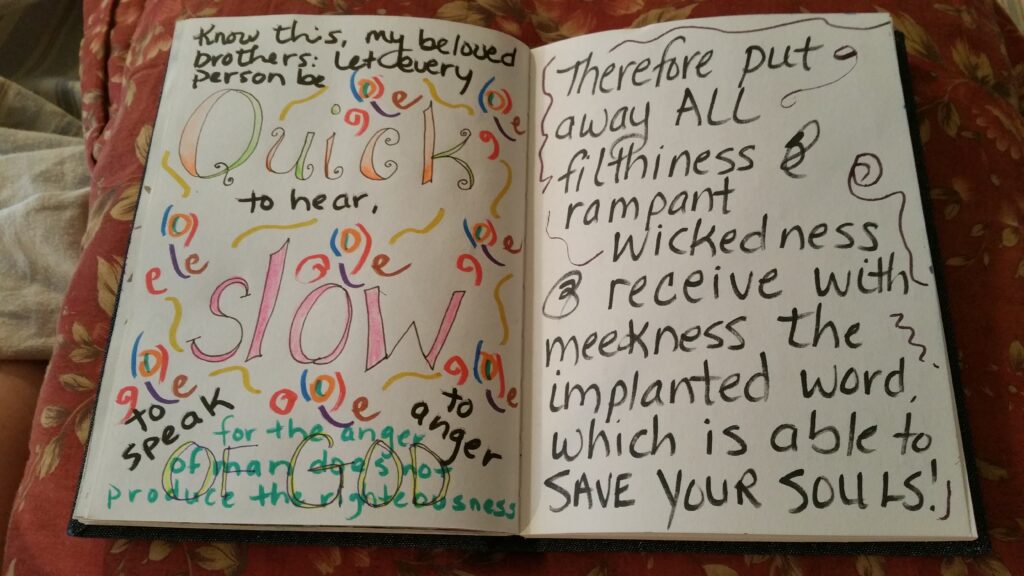 Know this, my beloved
brothers: Let every
person be
Quick
to hear,
slow
to speak
to anger
for the anger
of man does not
produce the righteousness
OF GOD
Therefore put
away ALL
filthiness &
rampant
wickedness
& receive with
meekness the
implanted word,
which is able to
SAVE YOUR SOULS!